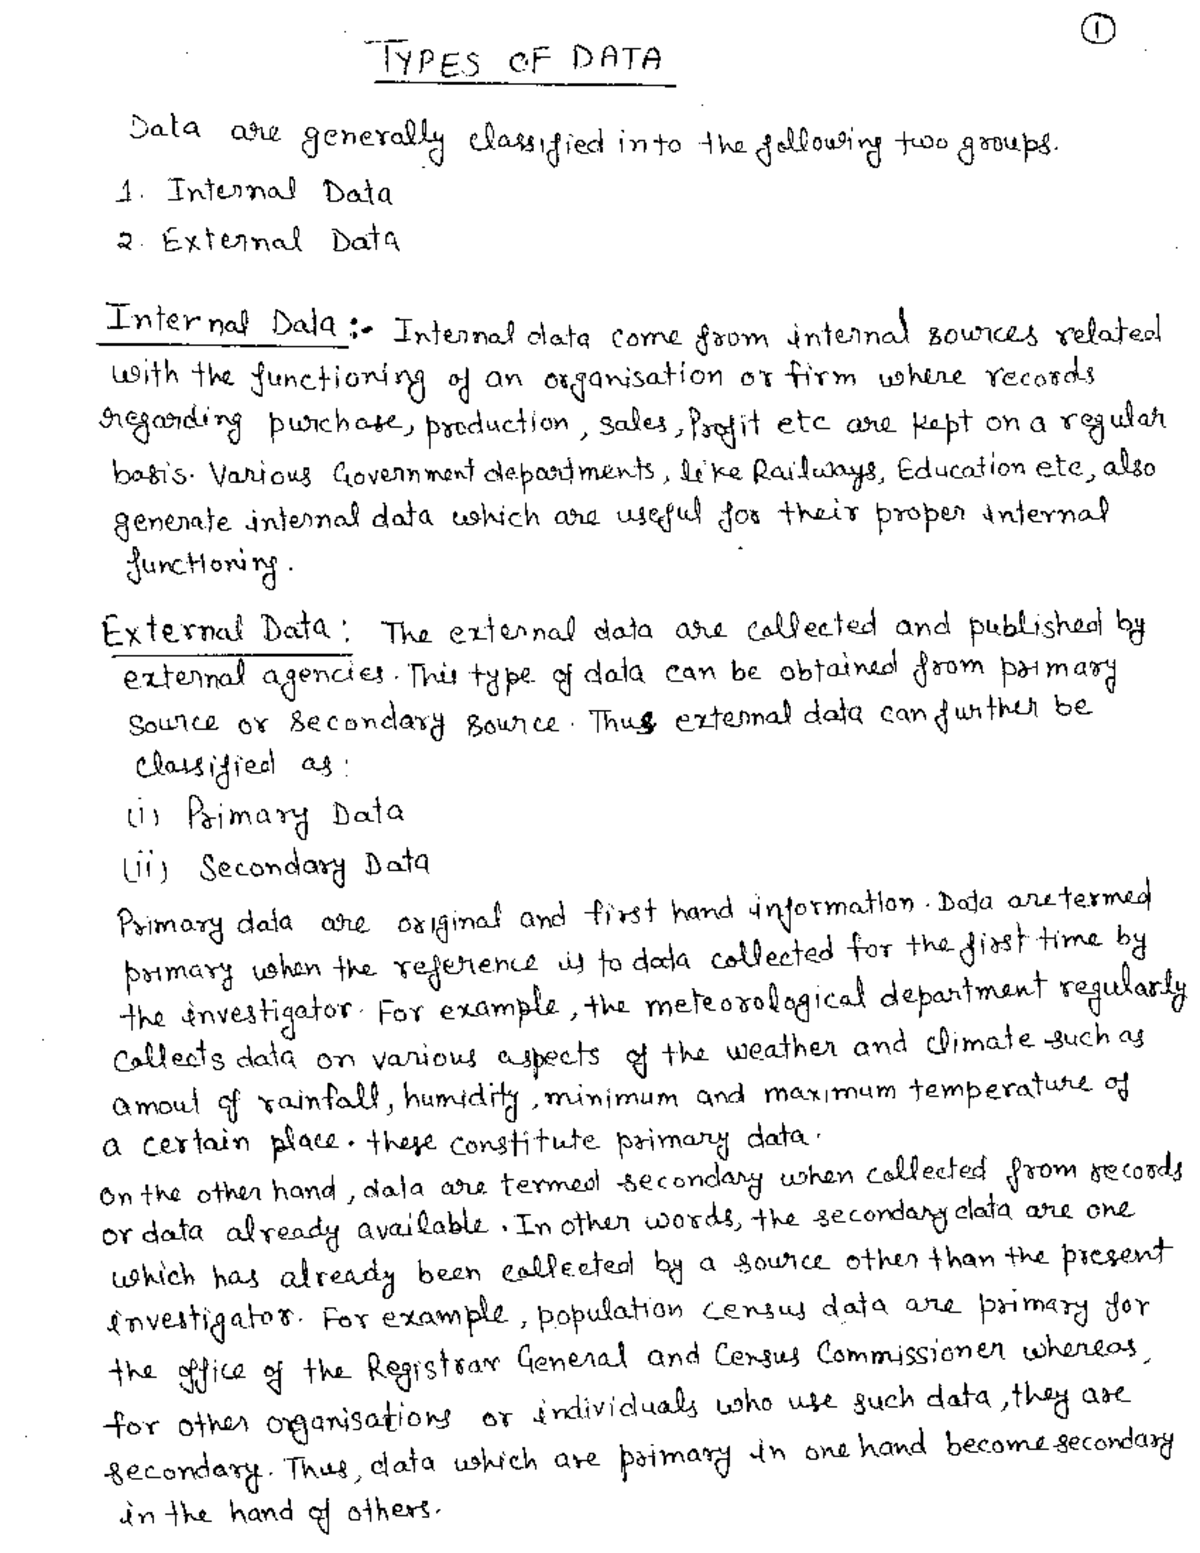 1
TYPES OF DATA
Data are generally classified into the following two groups.
1. Internal Data
2. External Data
Internal Data :- Internal data come from internal sources related
with the functioning of an organisation or firm where records
regarding purchase, production, sales, Profit etc are kept on a regular
basis. Various Government departments, like Railways, Education etc, also
generate internal data which are useful for their proper internal
functioning.
External Data : The external data are collected and published by
external agencies. This type of data can be obtained from primary
source or secondary source. Thus external data can further be
classified as :
(i) Primary Data
(ii) Secondary Data
Primary data are original and first hand information. Data are termed
primary when the reference is to data collected for the first time by
the investigator. For example, the meteorological department regularly
collects data on various aspects of the weather and climate such as
amout of rainfall, humidity, minimum and maximum temperature of
a certain place. these constitute primary data.
On the other hand, data are termed secondary when collected from records
or data already available. In other words, the secondary data are one
which has already been collected by a source other than the present
investigator. For example, population census data are primary for
the office of the Registrar General and Census Commissioner whereas,
for other organisations or individuals who use such data, they are
secondary. Thus, data which are primary in one hand become secondary
in the hand of others.